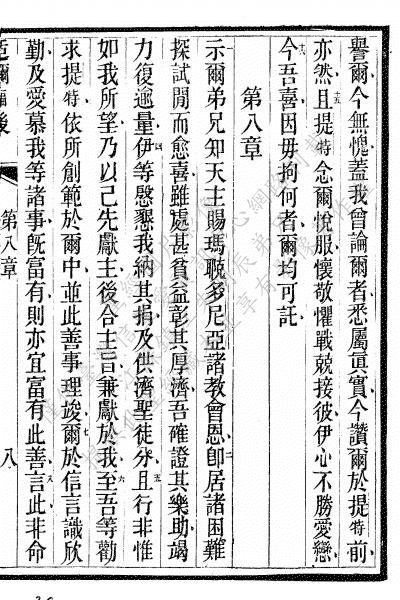 譽爾今無愧蓋我曾論爾者悉屬眞實今讚爾於提特前
十五亦然且提特念爾悅服懷敬懼戰兢接彼伊心不勝愛戀
十六今吾喜因毋拘何者爾均可託
第八章
一示爾弟兄知天主賜瑪聰多尼亞諸教會恩二卽居諸困難
探試閒而愈喜雖處甚貧益彰其厚濟三吾確證其樂助竭
力復逾量四伊等慇懇我納其捐及供濟聖徒分五且行非惟
如我所望乃以己先獻主後合主旨兼獻於我六至吾等勸
求提特依所創範於爾中並此善事理竣七爾於信言識欣
勤及愛慕我等諸事旣富有則亦宜富有此善八言此非命
後
第八章
八